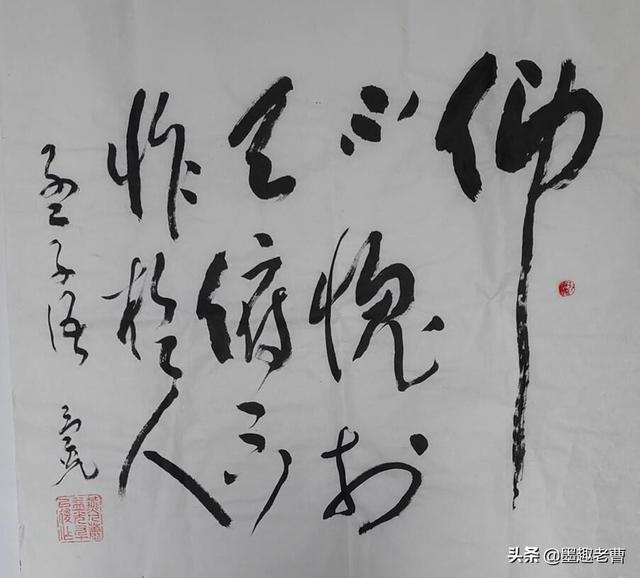 仰
不愧於
天俯不
怍於人
孟子语
头条 @墨趣老曹